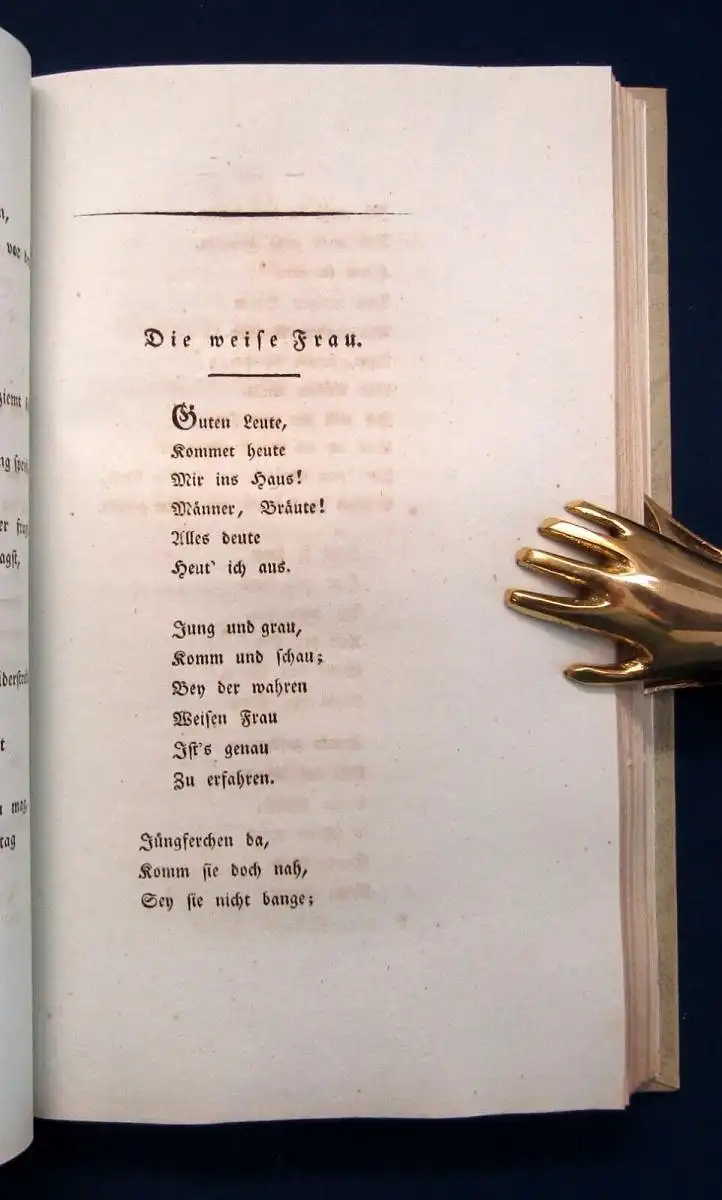 Die weise Frau.
Guten Leute,
Kommet heute
Mir ins Haus!
Männer, Bräute!
Alles deute
Heut' ich aus.
Jung und grau,
Komm und schau;
Bey der wahren
Weisen Frau
Ist's genau
Zu erfahren.
Jüngferchen da,
Komm sie doch nah,
Sey sie nicht bange;